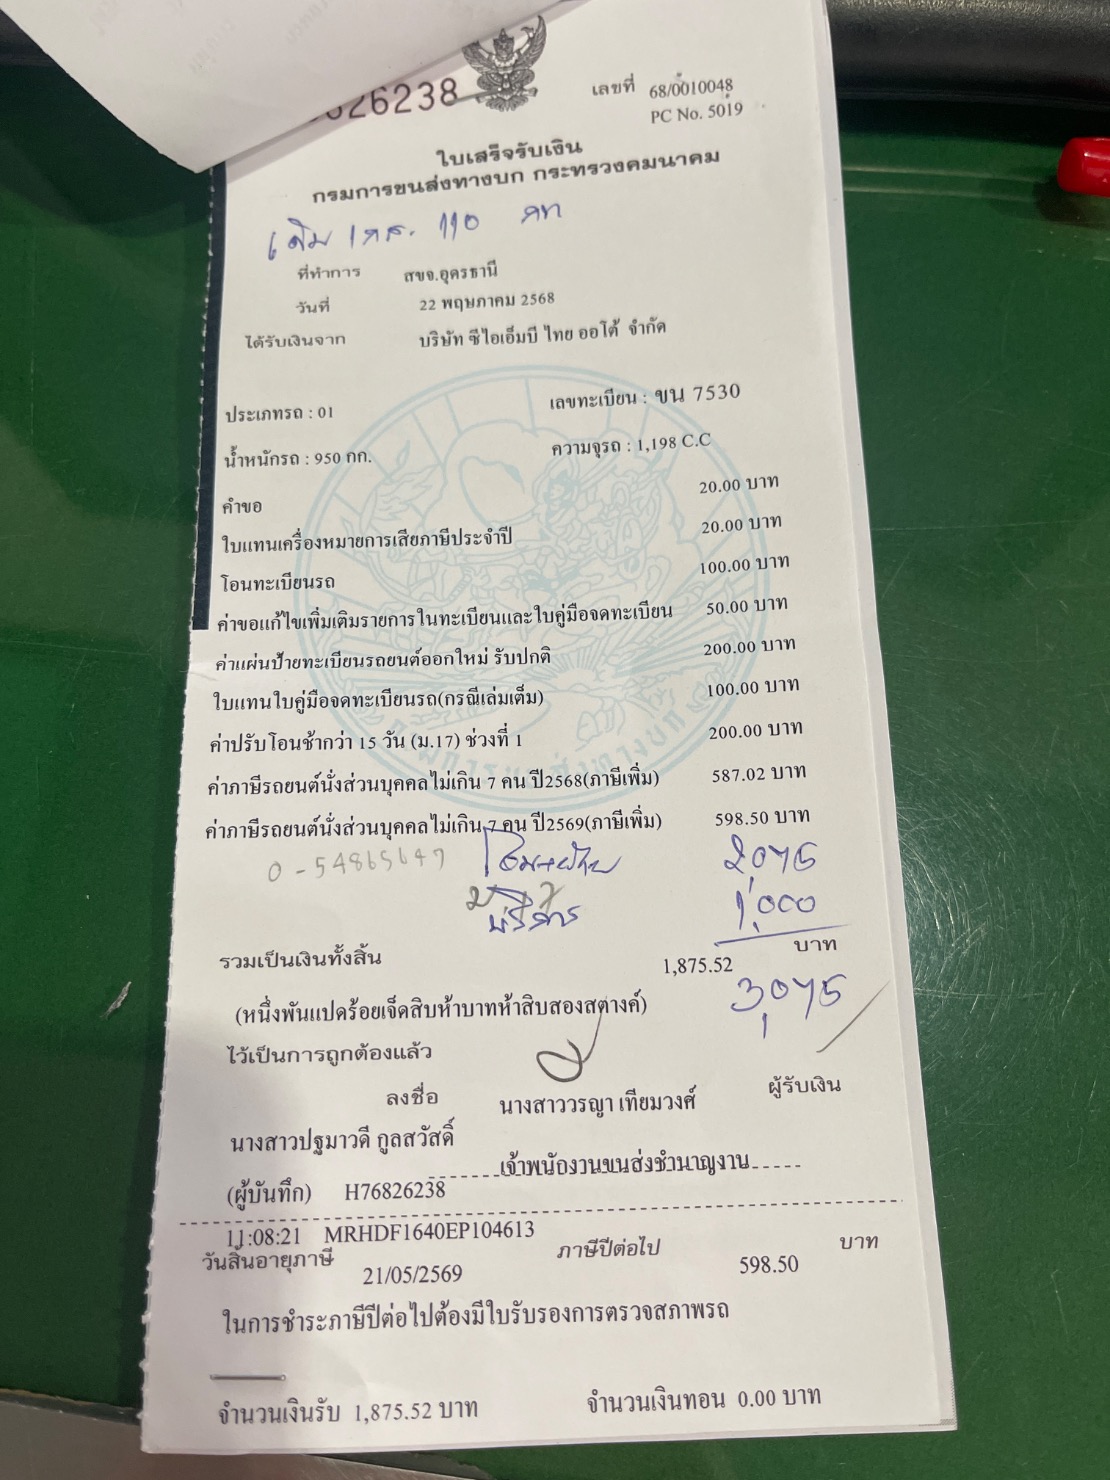 26238
เลขที่ 68/0010048
PC No. 5019
ใบเสร็จรับเงิน
กรมการขนส่งทางบก กระทรวงคมนาคม
เดิม 1กส. 110 กท
ที่ทำการ สขจ.อุดรธานี
วันที่ 22 พฤษภาคม 2568
ได้รับเงินจาก บริษัท ซีไอเอ็มบี ไทย ออโต้ จำกัด
ประเภทรถ : 01 เลขทะเบียน : ขน 7530
น้ำหนักรถ : 950 กก. ความจุรถ : 1,198 C.C
คำขอ 20.00 บาท
ใบแทนเครื่องหมายการเสียภาษีประจำปี 20.00 บาท
โอนทะเบียนรถ 100.00 บาท
ค่าขอแก้ไขเพิ่มเติมรายการในทะเบียนและใบคู่มือจดทะเบียน 50.00 บาท
ค่าแผ่นป้ายทะเบียนรถยนต์ออกใหม่ รับปกติ 200.00 บาท
ใบแทนใบคู่มือจดทะเบียนรถ(กรณีเล่มเต็ม) 100.00 บาท
ค่าปรับโอนช้ากว่า 15 วัน (ม.17) ช่วงที่ 1 200.00 บาท
ค่าภาษีรถยนต์นั่งส่วนบุคคลไม่เกิน 7 คน ปี2568(ภาษีเพิ่ม) 587.02 บาท
ค่าภาษีรถยนต์นั่งส่วนบุคคลไม่เกิน 7 คน ปี2569(ภาษีเพิ่ม) 598.50 บาท
0-54865647 โอน+ย้าย 2,075
บริการ 1,000
รวมเป็นเงินทั้งสิ้น 1,875.52 บาท
3,075
(หนึ่งพันแปดร้อยเจ็ดสิบห้าบาทห้าสิบสองสตางค์)
ไว้เป็นการถูกต้องแล้ว
ลงชื่อ นางสาววรญา เทียมวงศ์ ผู้รับเงิน
นางสาวปฐมาวดี กูลสวัสดิ์
เจ้าพนักงานขนส่งชำนาญงาน
(ผู้บันทึก) H76826238
11:08:21 MRHDF1640EP104613
วันสิ้นอายุภาษี 21/05/2569 ภาษีปีต่อไป 598.50 บาท
ในการชำระภาษีปีต่อไปต้องมีใบรับรองการตรวจสภาพรถ
จำนวนเงินรับ 1,875.52 บาท จำนวนเงินทอน 0.00 บาท